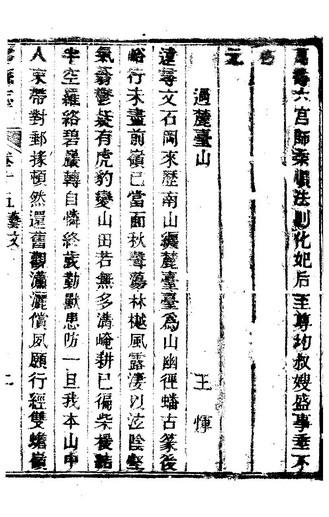 六宮師柔順法則化妃后至尊均叔嫂盛事垂不
元
過麓臺山
王惲
遠尋文石岡來歷南山麓臺臺為山幽徑蟠古篆後
峪行未盡前嶺已當面秋聲蕩林樾風露淒以泫陰壑
氣蓊鬱疑有虎豹變山田若無多溝崦耕已徧柴援詰
半空羅絡碧巖轉自憐終歲勤獸患防一旦我本山中
人束帶對郵掾頓然還舊觀瀟灑償夙願行經雙蟾嶺
卷十五藝文